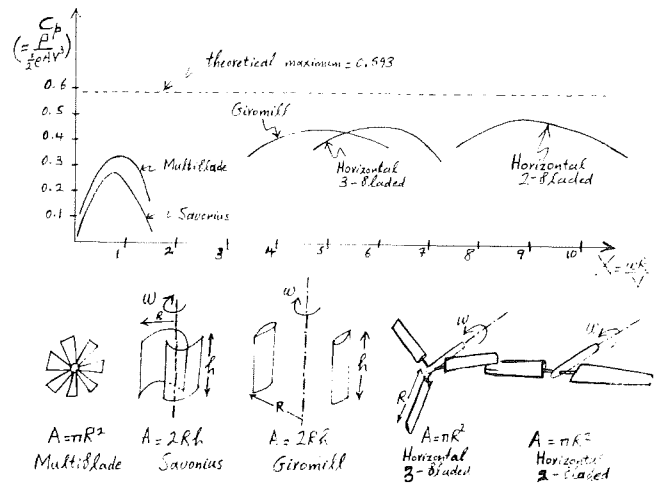 Cp
(= P / ½ρAV³)
theoretical maximum = 0.593
0.6
0.5
0.4
0.3
0.2
0.1
Giromill
Multiblade
Savonius
Horizontal
3-Bladed
Horizontal
2-Bladed
1 2 3 4 5 6 7 8 9 10
X = ωR/V
ω
R
h
A = πR²
Multiblade
A = 2Rh
Savonius
ω
R
h
A = 2Rh
Giromill
ω
R
A = πR²
Horizontal
3-Bladed
ω
A = πR²
Horizontal
2-Bladed